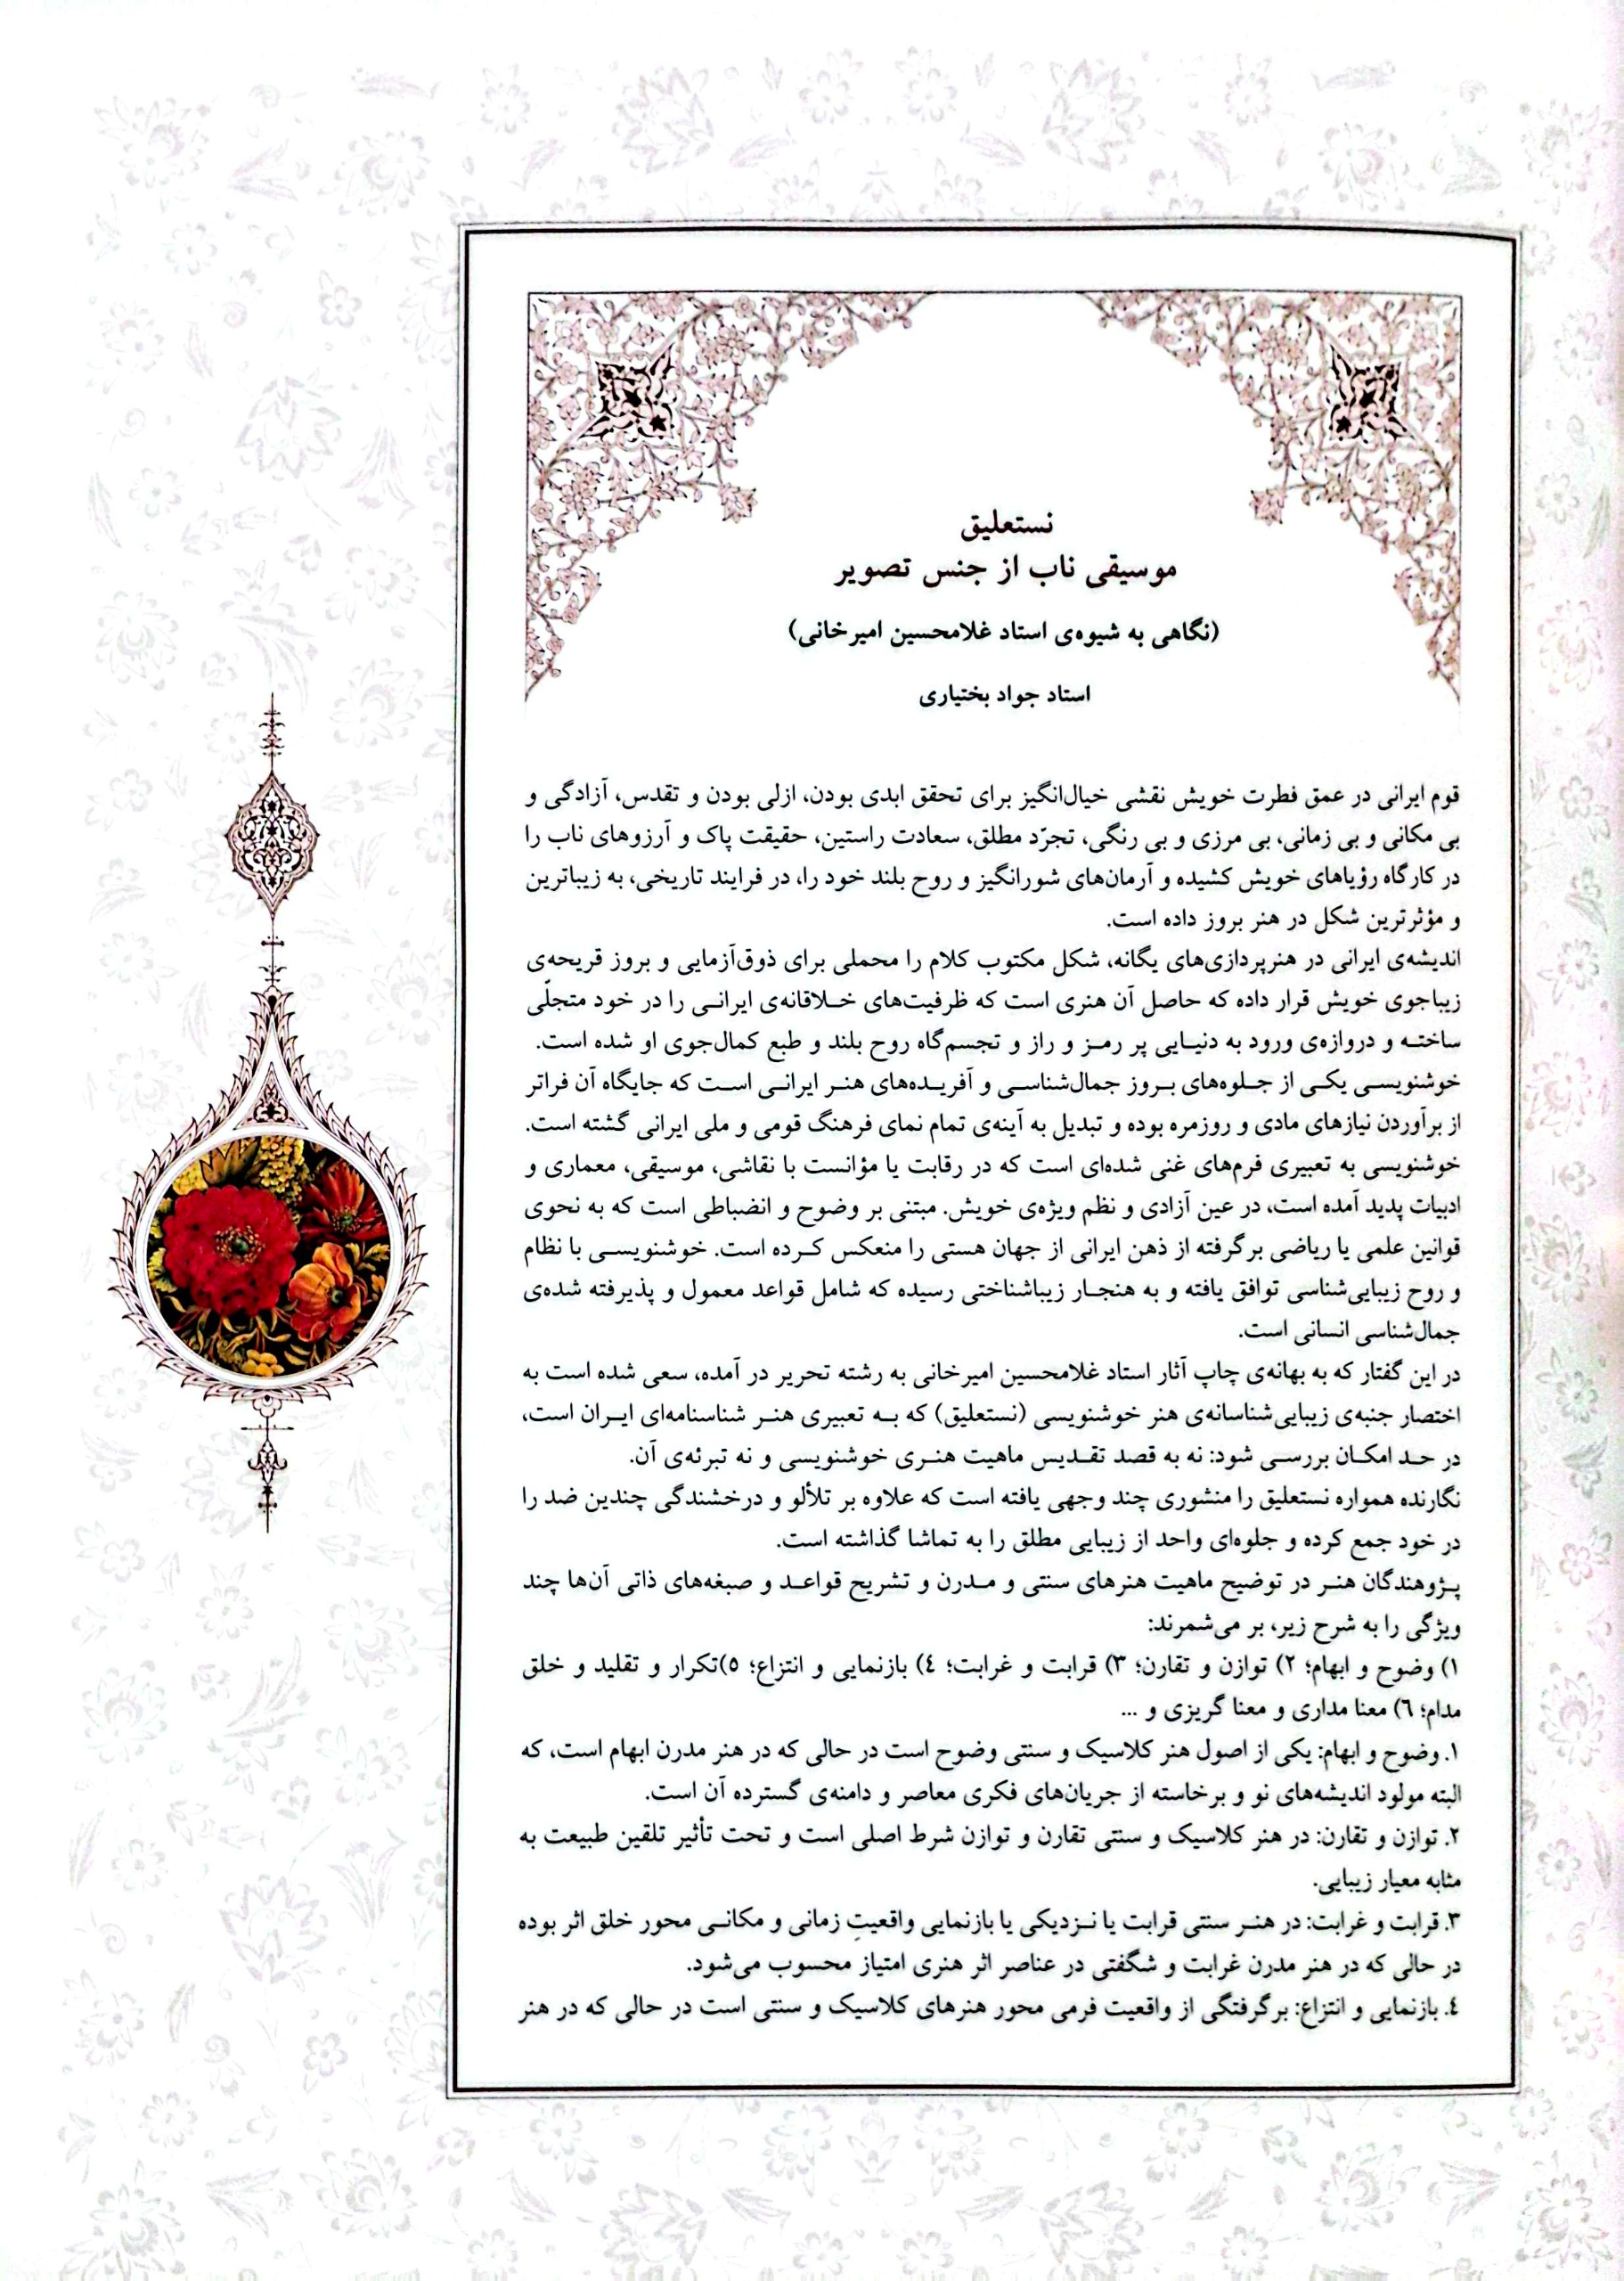 نستعلیق
موسیقی ناب از جنس تصویر
(نگاهی به شیوه‌ی استاد غلامحسین امیرخانی)
استاد جواد بختیاری
قوم ایرانی در عمق فطرت خویش نقشی خیال‌انگیز برای تحقق ابدی بودن، ازلی بودن و تقدس، آزادگی و
بی مکانی و بی زمانی، بی مرزی و بی رنگی، تجرّد مطلق، سعادت راستین، حقیقت پاک و آرزوهای ناب را
در کارگاه رؤیاهای خویش کشیده و آرمان‌های شورانگیز و روح بلند خود را، در فرایند تاریخی، به زیباترین
و مؤثرترین شکل در هنر بروز داده است.
اندیشه‌ی ایرانی در هنرپردازی‌های یگانه، شکل مکتوب کلام را محملی برای ذوق‌آزمایی و بروز قریحه‌ی
زیباجوی خویش قرار داده که حاصل آن هنری است که ظرفیت‌های خـلاقانه‌ی ایرانـی را در خود متجلّی
ساختـه و دروازه‌ی ورود به دنیـایی پر رمـز و راز و تجسم‌گاه روح بلند و طبع کمال‌جوی او شده است.
خوشنویسـی یکـی از جـلوه‌های بـروز جمال‌شناسـی و آفریـده‌های هنـر ایرانـی اسـت که جایگاه آن فراتر
از برآوردن نیازهای مادی و روزمره بوده و تبدیل به آینه‌ی تمام نمای فرهنگ قومی و ملی ایرانی گشته است.
خوشنویسی به تعبیری فرم‌های غنی شده‌ای است که در رقابت یا مؤانست با نقاشی، موسیقی، معماری و
ادبیات پدید آمده است، در عین آزادی و نظم ویژه‌ی خویش. مبتنی بر وضوح و انضباطی است که به نحوی
قوانین علمی یا ریاضی برگرفته از ذهن ایرانی از جهان هستی را منعکس کـرده است. خوشنویسـی با نظام
و روح زیبایی‌شناسی توافق یافته و به هنجـار زیباشناختی رسیده که شامل قواعد معمول و پذیرفته شده‌ی
جمال‌شناسی انسانی است.
در این گفتار که به بهانه‌ی چاپ آثار استاد غلامحسین امیرخانی به رشته تحریر در آمده، سعی شده است به
اختصار جنبه‌ی زیبایی‌شناسانه‌ی هنر خوشنویسی (نستعلیق) که بـه تعبیری هنـر شناسنامه‌ای ایـران است،
در حـد امکـان بررسـی شود: نه به قصد تقـدیس ماهیت هنـری خوشنویسی و نه تبرئه‌ی آن.
نگارنده همواره نستعلیق را منشوری چند وجهی یافته است که علاوه بر تلألو و درخشندگی چندین ضد را
در خود جمع کرده و جلوه‌ای واحد از زیبایی مطلق را به تماشا گذاشته است.
پـژوهندگان هنـر در توضیح ماهیت هنرهای سنتی و مـدرن و تشریح قواعـد و صبغه‌های ذاتی آن‌ها چند
ویژگی را به شرح زیر، بر می‌شمرند:
۱) وضوح و ابهام؛ ۲) توازن و تقارن؛ ۳) قرابت و غرابت؛ ٤) بازنمایی و انتزاع؛ ٥)تکرار و تقلید و خلق
مدام؛ ٦) معنا مداری و معنا گریزی و ...
۱. وضوح و ابهام: یکی از اصول هنر کلاسیک و سنتی وضوح است در حالی که در هنر مدرن ابهام است، که
البته مولود اندیشه‌های نو و برخاسته از جریان‌های فکری معاصر و دامنه‌ی گسترده آن است.
۲. توازن و تقارن: در هنر کلاسیک و سنتی تقارن و توازن شرط اصلی است و تحت تأثیر تلقین طبیعت به
مثابه معیار زیبایی.
۳. قرابت و غرابت: در هنـر سنتی قرابت یا نـزدیکی یا بازنمایی واقعیتِ زمانی و مکانـی محور خلق اثر بوده
در حالی که در هنر مدرن غرابت و شگفتی در عناصر اثر هنری امتیاز محسوب می‌شود.
٤. بازنمایی و انتزاع: برگرفتگی از واقعیت فرمی محور هنرهای کلاسیک و سنتی است در حالی که در هنر